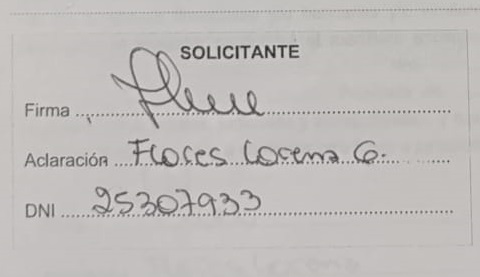 SOLICITANTE
Firma
Aclaración Flores Lorena G.
DNI 25307933